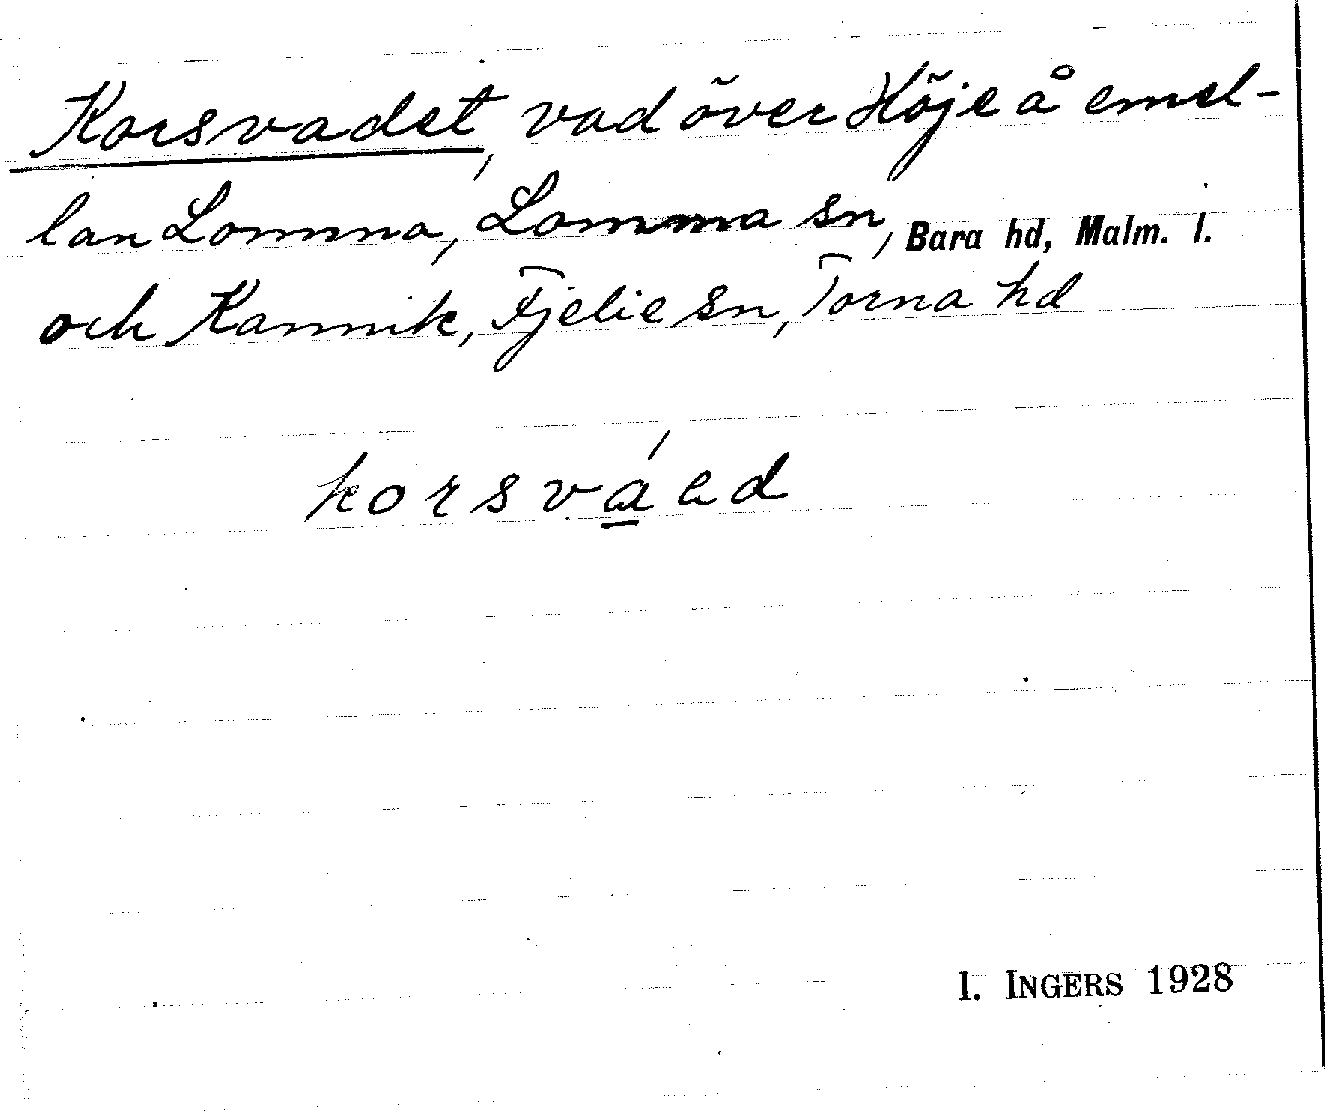 Korsvadet, vad över Höje å emel-
lan Lomma, Lomma sn, Bara hd, Malm. l.
och Kannik, Fjelie sn, Torna hd
korsváad
I. INGERS 1928